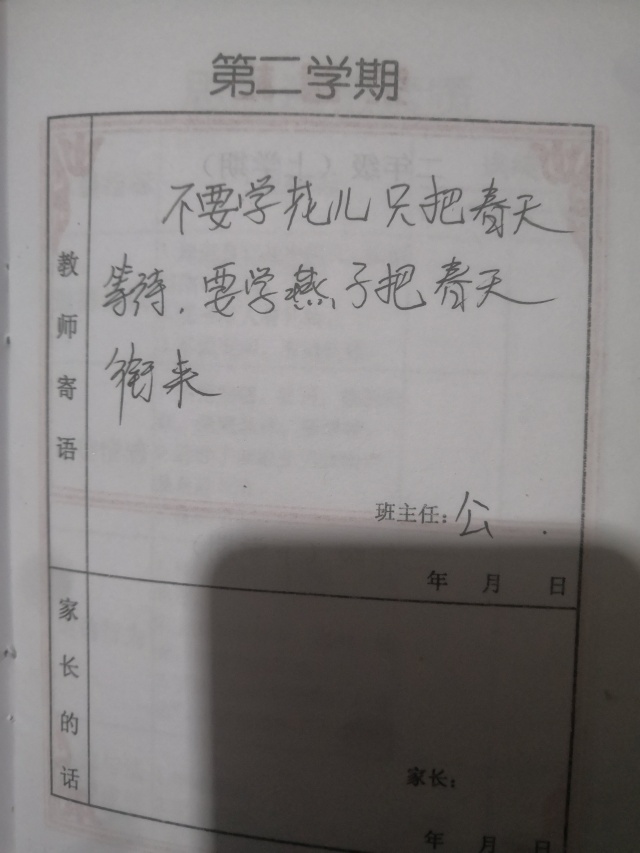 第二学期
教师寄语
不要学花儿只把春天
等待，要学燕子把春天
衔来
班主任：公
年 月 日
家长的话
家长：
年 月 日